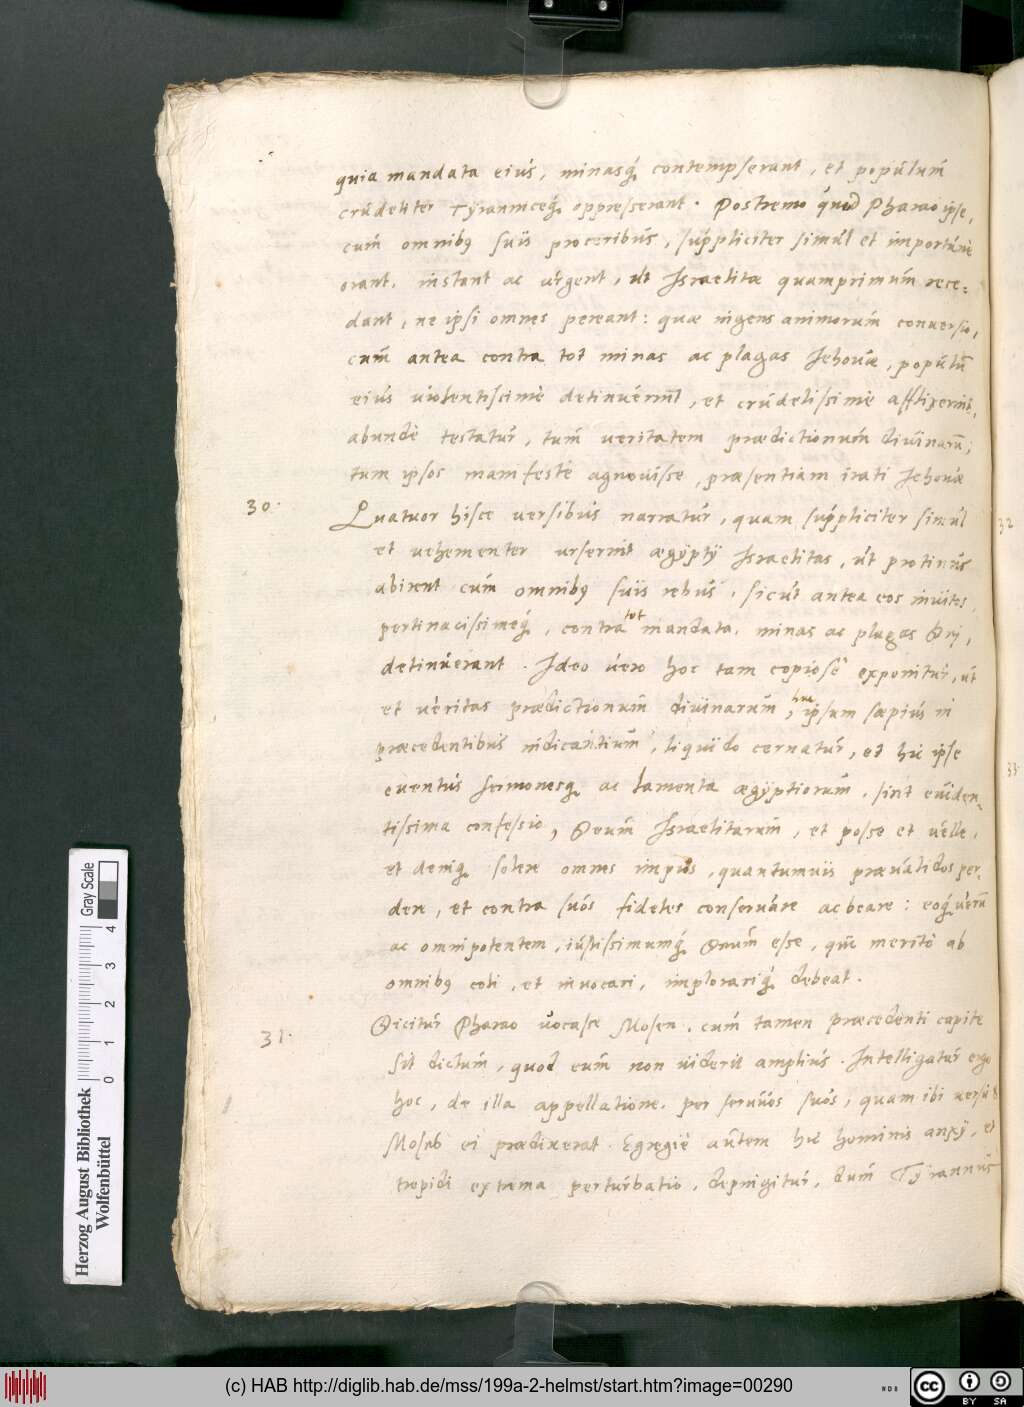 quia mandata eiús, minasq́ȝ contempserant, et popúlúm
crúdeliter Tÿrannicéq́ȝ oppresserant. Postremo quòd Pharao ipse,
cúm omnibȝ súis proceribús, súppliciter simúl et importúnè
orant, instant ac úrgent, út Israelitæ quamprimúm rece-
dant, ne ipsi omnes pereant: quæ ingens animorúm conuersio,
cúm antea contra tot minas ac plagas Jehovæ, popúlū
eiús violentissimè detinúerint, et crúdelissimè afflixerint,
abundè testatúr, túm veritatem prædictionúm diúinarū;
tum ipsos manifestè agnouisse, præsentiam irati Jehouæ
30.
Quatuor hisce versibús narratúr, quam súppliciter simúl
et vehementer urserint ægÿptÿ Israelitas, út protinús
abirent cúm omnibȝ súis rebús, sicút antea eos inúitos,
pertinacissimeq́ȝ, contra tot mandata, minas ac plagas Dei,
detinúerant. Ideo vero hoc tam copiosè exponitúr, út
et véritas prædictionúm diúinarúm, huc ipsum sæpiús in
præcedentibús indicantiúm, liquido cernatúr, et hic ipse
euentús sermonesqȝ ac lamenta ægÿptiorúm, sint eúiden-
tissima confessio, Deum Israelitarúm, et posse et vélle,
et deniqȝ solere omnes impios, quantumuis præúalidos per-
dere, et contra súos fideles conserúare ac beare: eoq́ȝ verū
ac omnipotentem, iústissimumq́ȝ Deúm esse, qui meritò ab
omnibȝ coli, et inuocari, implorariq́ȝ debeat.
31.
Dicitúr Pharao vocasse Mosen, cúm tamen præcedenti capite
sit dictúm, quod eúm non viderit ampliús. Intelligatúr ergo
hoc, de illa appellatione, per serúos súos, quam ibi versú 8
Moses ei prædixerat. Egregiè aútem hic hominis anxÿ, et
trepidi extrema pertúrbatio, depingitúr, dúm Tÿrannús
32
33
Herzog August Bibliothek
Wolfenbüttel
0 1 2 3 4
Gray Scale
(c) HAB http://diglib.hab.de/mss/199a-2-helmst/start.htm?image=00290
cc BY SA